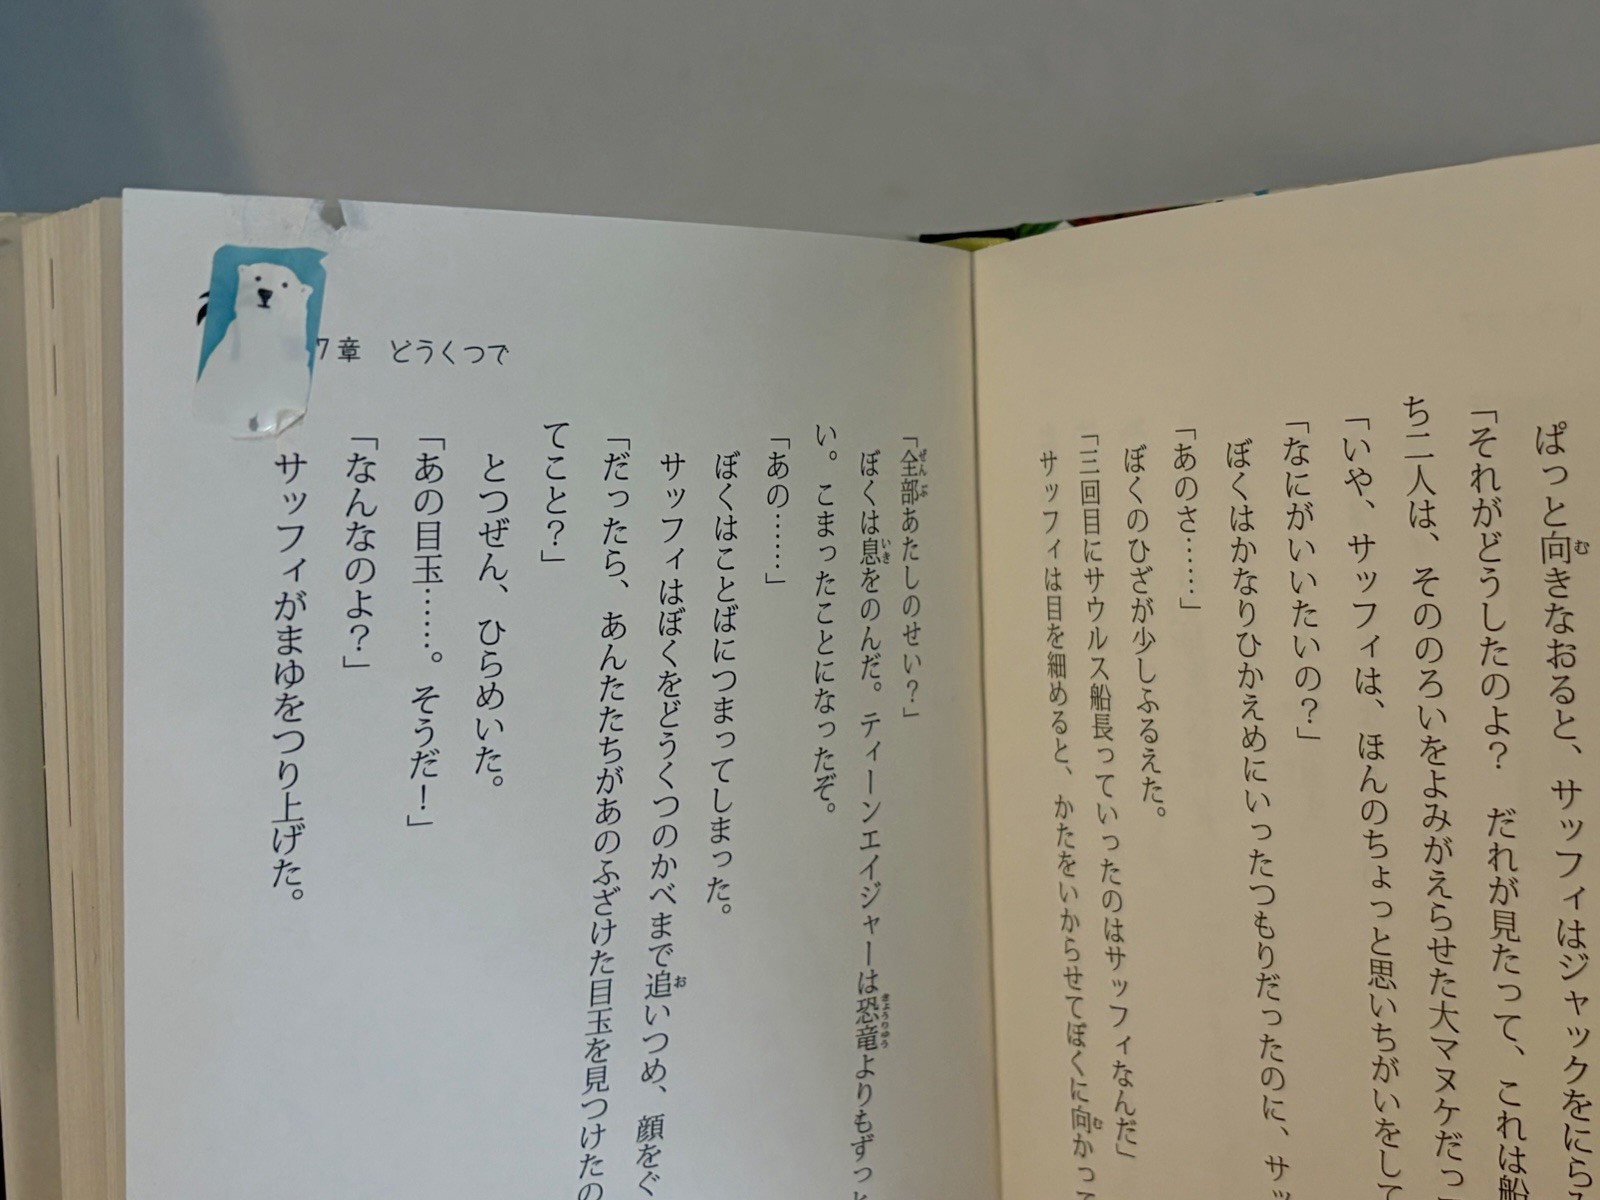 ぱっと向きなおると、サッフィはジャックをにら
「それがどうしたのよ？　だれが見たって、これは船
ち二人は、そののろいをよみがえらせた大マヌケだっ
「いや、サッフィは、ほんのちょっと思いちがいをして
「なにがいいたいの？」
ぼくはかなりひかえめにいったつもりだったのに、サッ
「あのさ……」
ぼくのひざが少しふるえた。
「三回目にサウルス船長っていったのはサッフィなんだ」
サッフィは目を細めると、かたをいからせてぼくに向かって
7章　どうくつで
「全部あたしのせい？」
ぼくは息をのんだ。ティーンエイジャーは恐竜よりもずっと
い。こまったことになったぞ。
「あの……」
ぼくはことばにつまってしまった。
サッフィはぼくをどうくつのかべまで追いつめ、顔をぐ
「だったら、あんたたちがあのふざけた目玉を見つけたの
てこと？」
とつぜん、ひらめいた。
「あの目玉……。そうだ！」
「なんなのよ？」
サッフィがまゆをつり上げた。